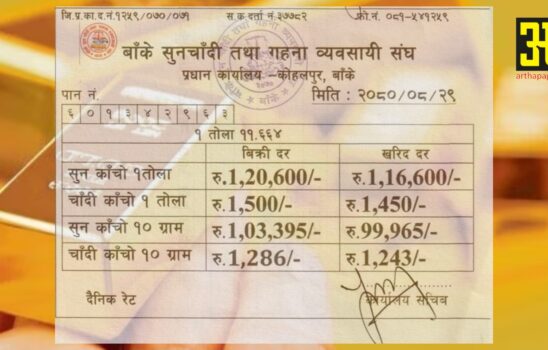 जि.प्र.का.द.नं.१२५९/०७०/०७१ स.क.दर्ता नं.३७७८२ फो.नं. ०८१-५४१२५९
बाँके सुनचाँदी तथा गहना व्यवसायी संघ
प्रधान कार्यालय –कोहलपुर, बाँके
पान नं. मिति : २०८०/०८/२९
६ ० १ ३ ४ २ ९ ६ ३
१ तोला ११.६६४
बिक्री दर खरिद दर
सुन काँचो १तोला रु.1,20,600/- रु.1,16,600/-
चाँदी काँचो १ तोला रु.1,500/- रु.1,450/-
सुन काँचो १० ग्राम रु.1,03,395/- रु.99,965/-
चाँदी काँचो १० ग्राम रु.1,286/- रु.1,243/-
दैनिक रेट कार्यालय सचिब